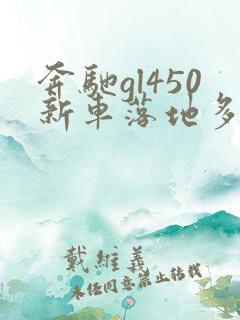 奔驰gl450
新车落地多
戴维义
未经同意禁止转载